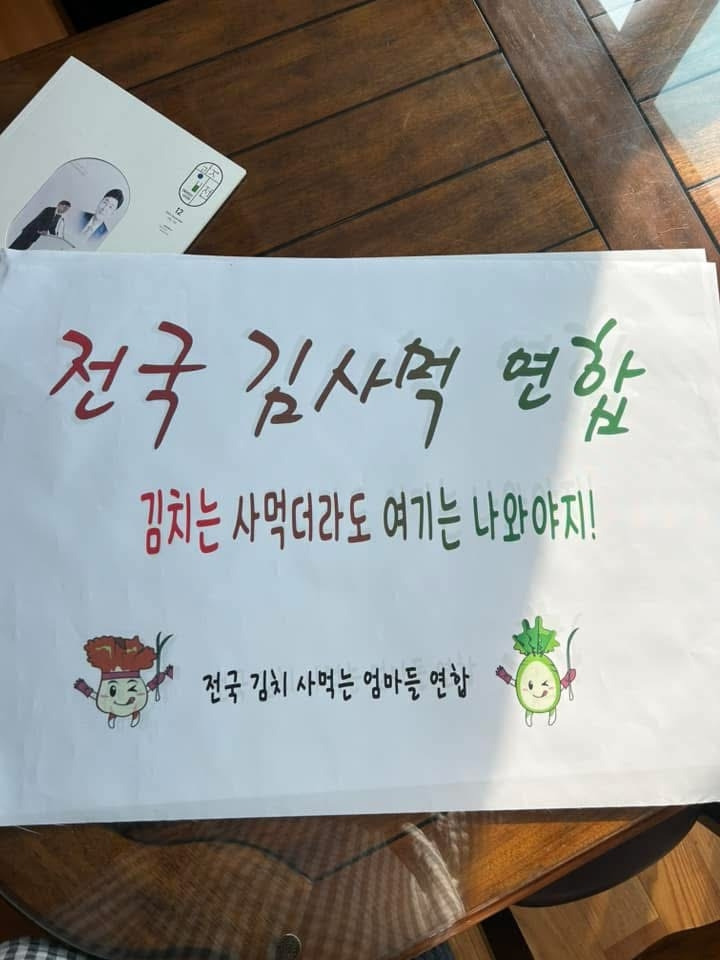 12
전국 김사먹 연합
김치는 사먹더라도 여기는 나와야지!
전국 김치 사먹는 엄마들 연합